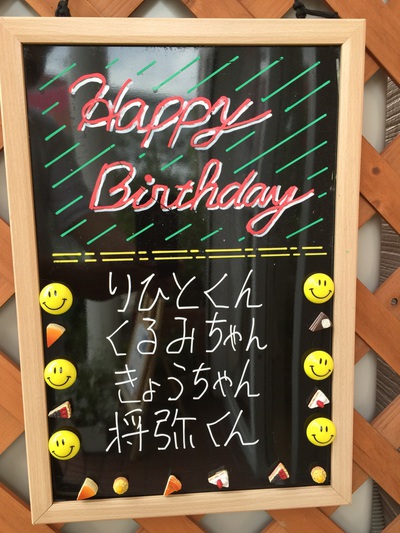 Happy
Birthday
りひとくん
くるみちゃん
きょうちゃん
将弥くん